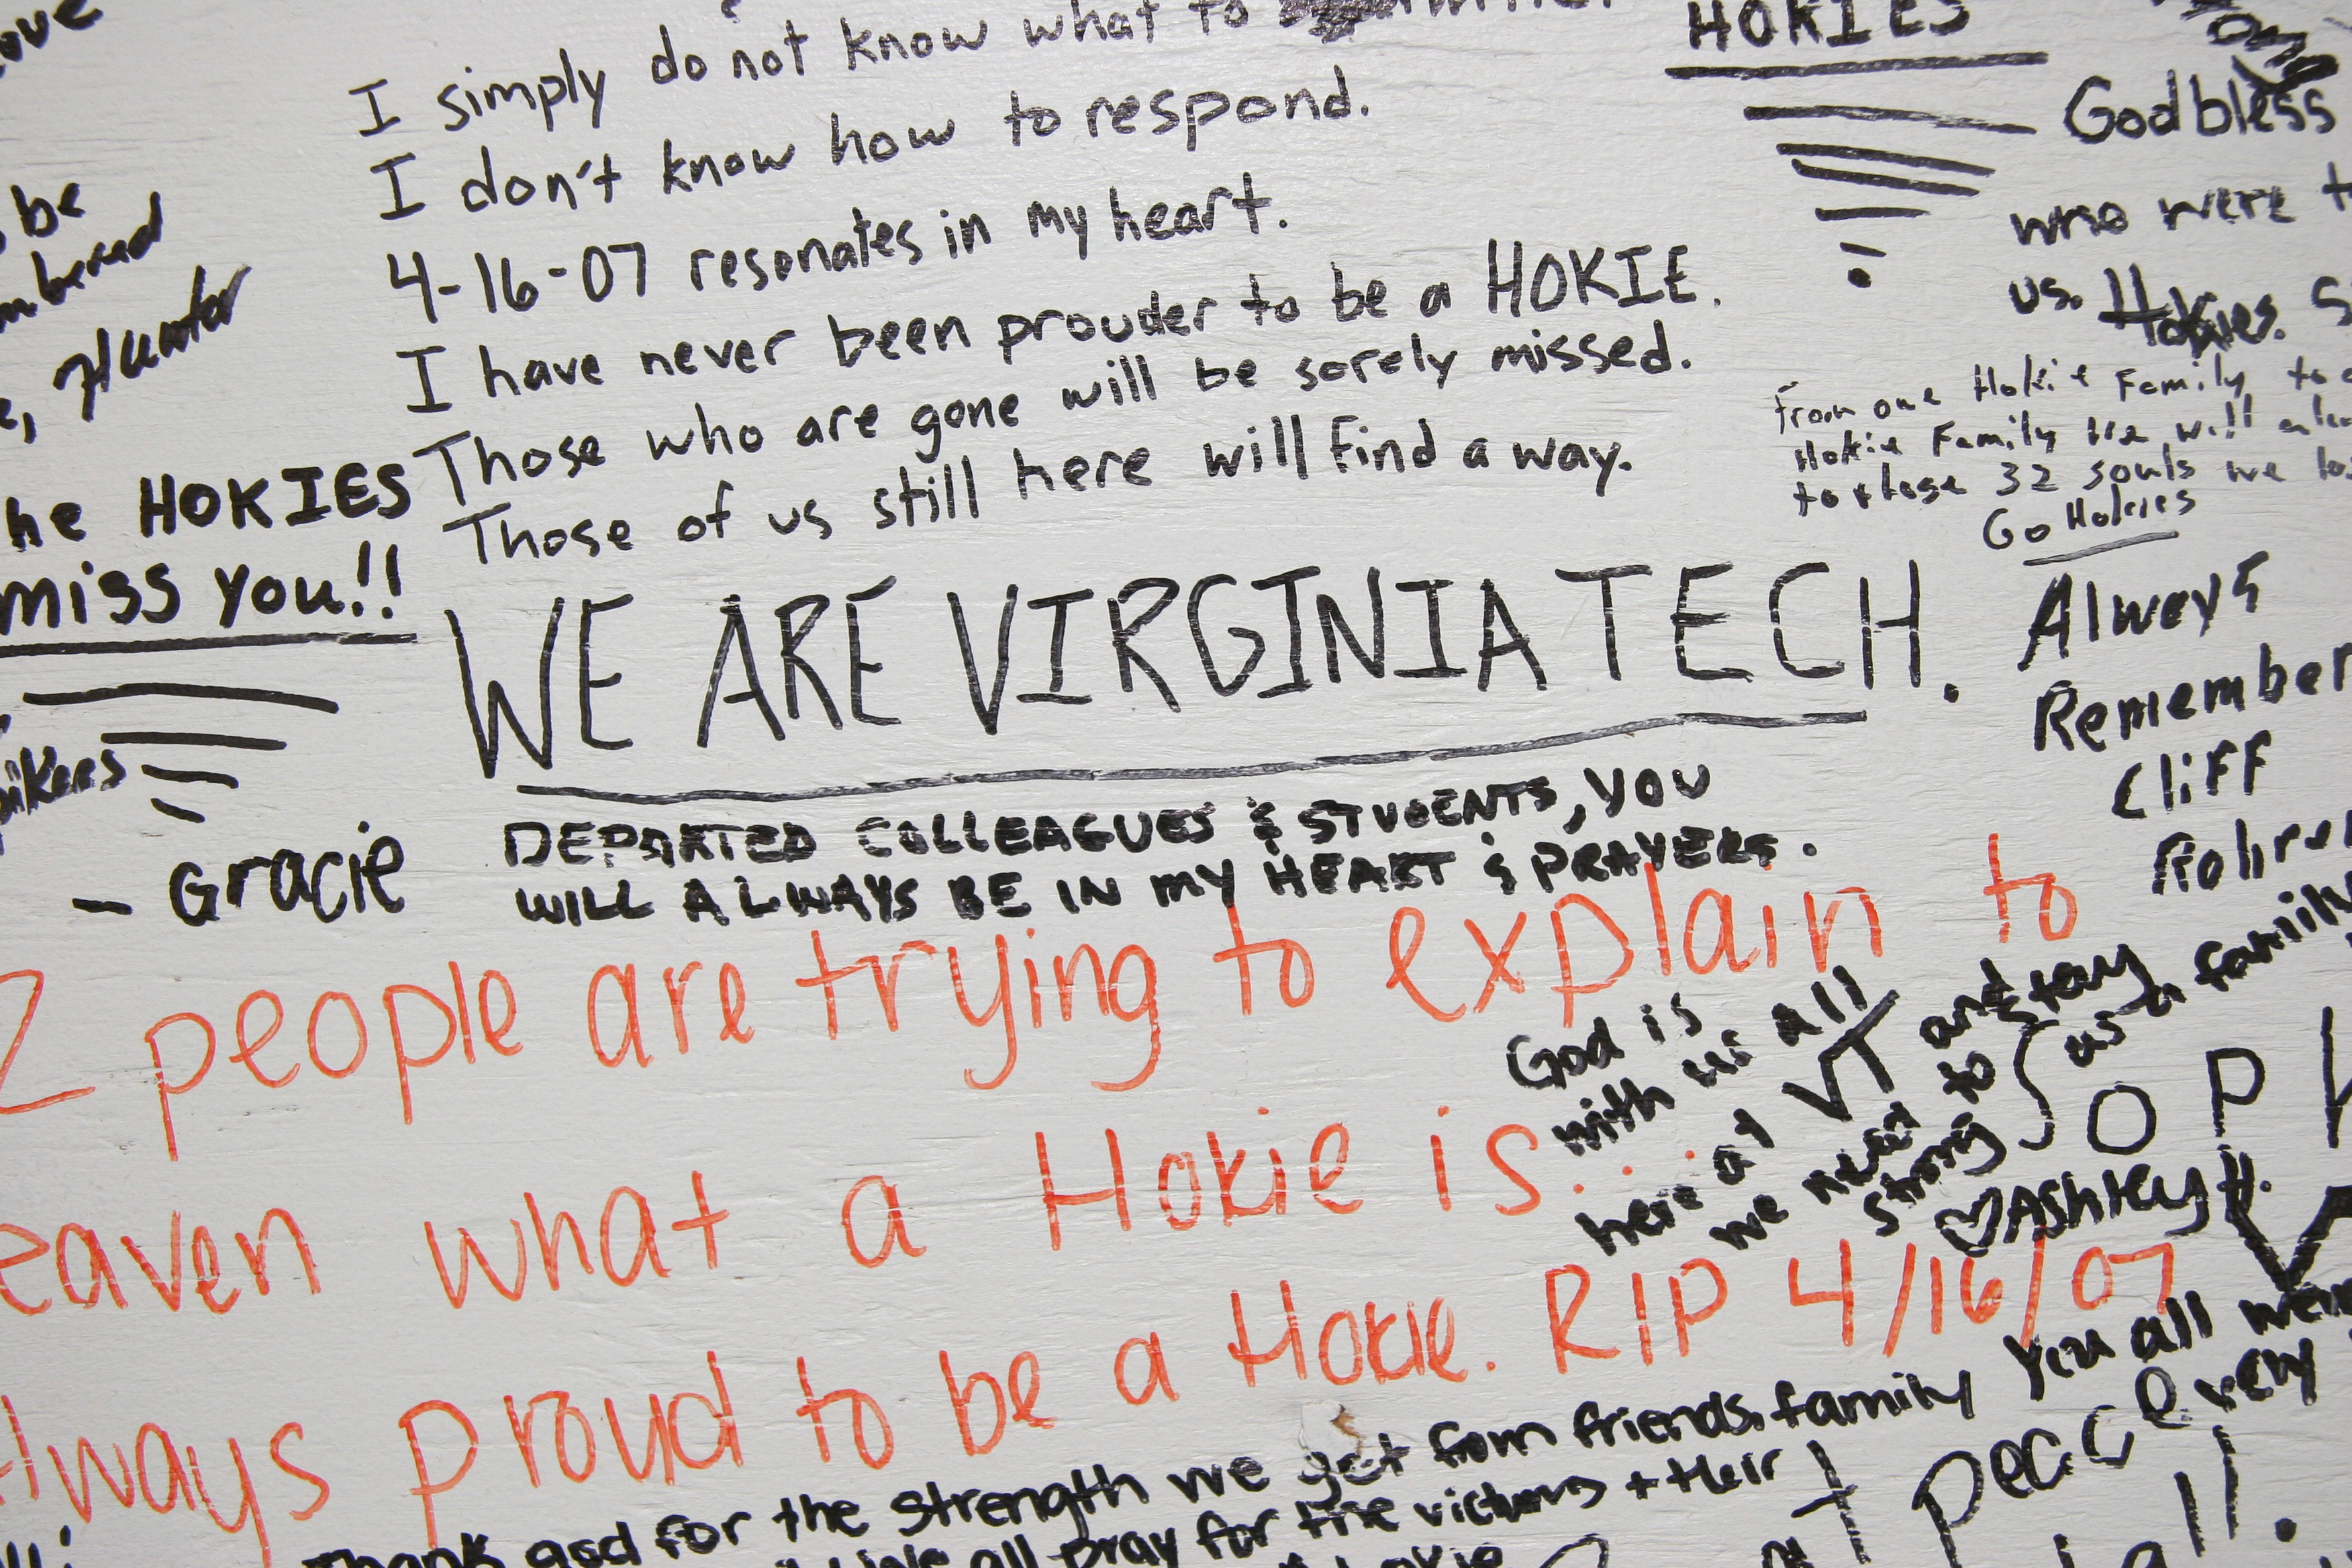 I simply do not know what to
I don't know how to respond.
4-16-07 resonates in my heart.
I have never been prouder to be a HOKIE.
Those who are gone will be sorely missed.
Those of us still here will find a way.
WE ARE VIRGINIA TECH.
DEPARTED COLLEAGUES & STUDENTS, YOU
WILL ALWAYS BE IN MY HEART & PRAYERS.
be
Hunter
he HOKIES
miss you!!
- Gracie
HOKIES
God bless
who were
us. Hokies.
From one Hokie Family to
Hokie Family We will
to those 32 souls we
Go Hokies
Always
Remember
Cliff
2 people are trying to explain to
eaven what a Hokie is...
lways proud to be a Hokie. RIP 4/16/07
God is
with us all
here at VT and
we need to stay
strong as a family
♡ Ashley H.
You all
Thank god for the strength we get from friends, family
all pray for the victims + their
peace
very